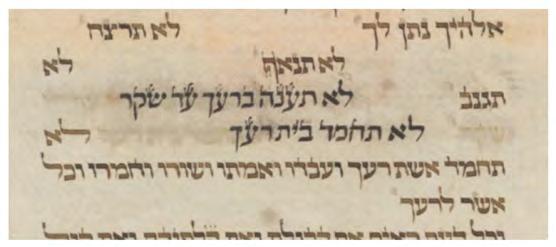 אלהיך נתן לך לא תרצח
לא תנאף לא
תגנב לא תענה ברעך עד שקר
לא תחמד בית רעך לא
תחמד אשת רעך ועבדו ואמתו ושורו וחמרו וכל
אשר לרעך